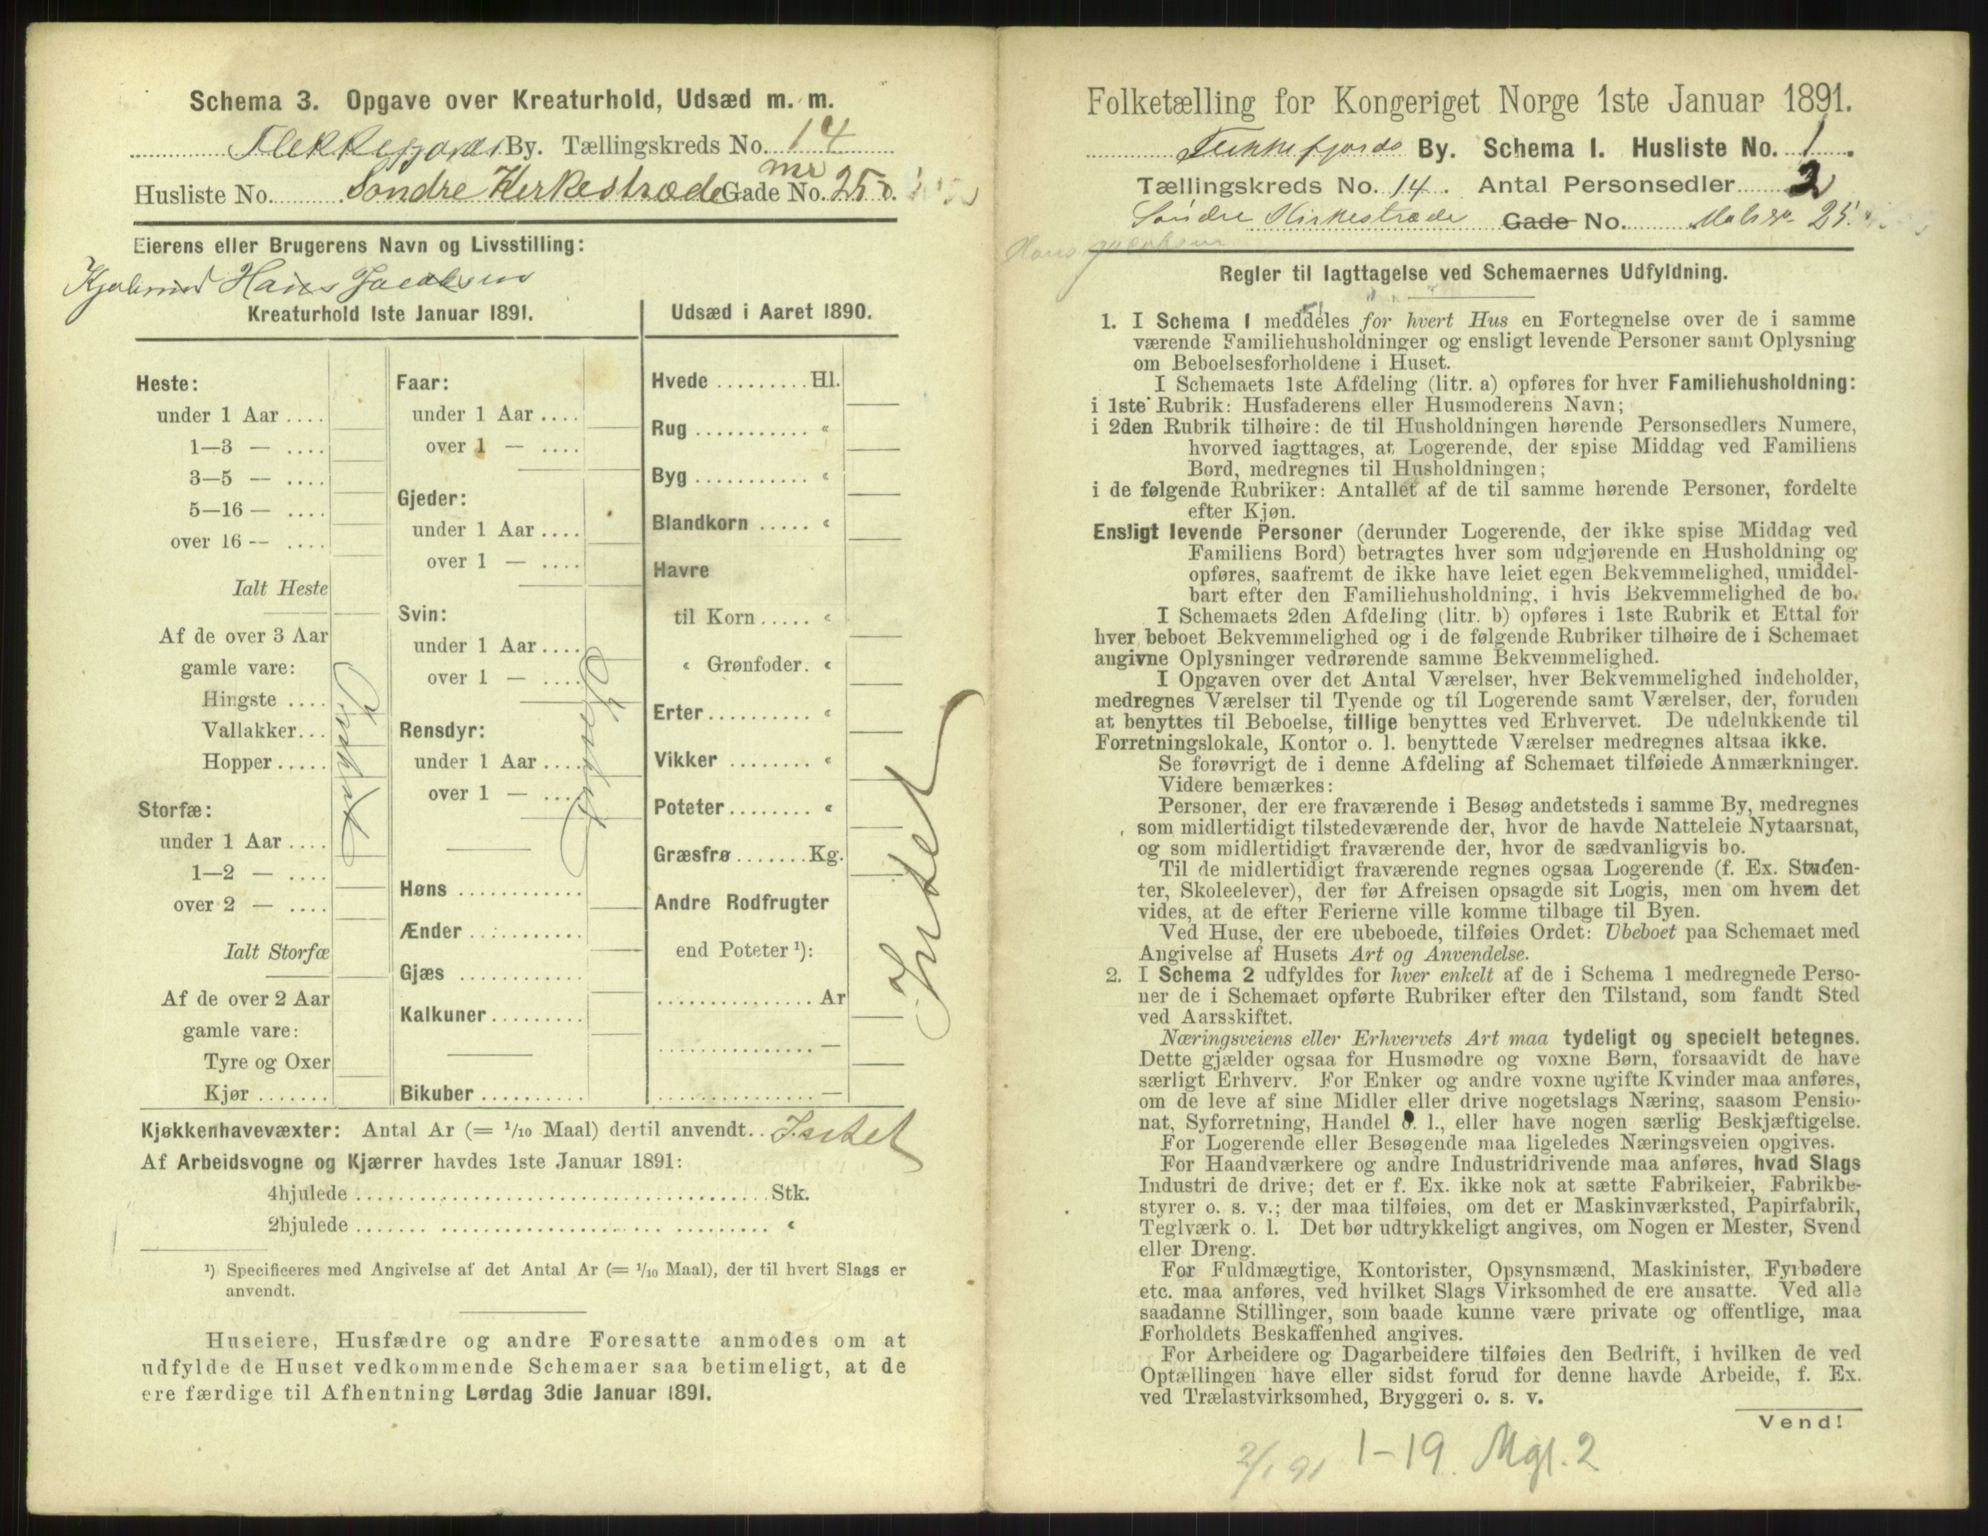 Schema 3. Opgave over Kreaturhold, Udsæd m. m.
Flekkefjords By. Tællingskreds No. 14
Husliste No. Søndre Kirkestræde Gade No. 25
Eierens eller Brugerens Navn og Livsstilling:
Hans Jacobsen
Kreaturhold 1ste Januar 1891.
Heste:
under 1 Aar ....
1—3 — ....
3—5 — ....
5—16 — ....
over 16 -- ....
Ialt Heste
Af de over 3 Aar
gamle vare:
Hingste ....
Vallakker...
Hopper.....
Storfæ:
under 1 Aar ....
1—2 — ....
over 2 — ....
Ialt Storfæ
Af de over 2 Aar
gamle vare:
Tyre og Oxer
Kjør .......
Intet
Faar:
under 1 Aar ....
over 1 — ....
Gjeder:
under 1 Aar ....
over 1 — ....
Svin:
under 1 Aar ....
over 1 — ....
Rensdyr:
under 1 Aar ....
over 1 — ....
Høns ...........
Ænder ...........
Gjæs ...........
Kalkuner.........
Bikuber ..........
Intet
Udsæd i Aaret 1890.
Hvede ......... Hl.
Rug ........... «
Byg ........... «
Blandkorn ..... «
Havre
til Korn ..... «
« Grønfoder. «
Erter.......... «
Vikker ........ «
Poteter ........ «
Græsfrø ....... Kg.
Andre Rodfrugter
end Poteter ¹):
............... Ar
............... —
............... —
Intet
Kjøkkenhavevæxter: Antal Ar (= 1/10 Maal) dertil anvendt.. Intet
Af Arbeidsvogne og Kjærrer havdes 1ste Januar 1891:
4hjulede ..................................... Stk.
2hjulede ..................................... «
¹) Specificeres med Angivelse af det Antal Ar (= 1/10 Maal), der til hvert Slags er
anvendt.
Huseiere, Husfædre og andre Foresatte anmodes om at
udfylde de Huset vedkommende Schemaer saa betimeligt, at de
ere færdige til Afhentning Lørdag 3die Januar 1891.
Folketælling for Kongeriget Norge 1ste Januar 1891.
Flekkefjords By. Schema I. Husliste No. 1.
Tællingskreds No. 14. Antal Personsedler 2
Søndre Kirkestræde Gade No. 25.
Hans Jacobsen
Regler til Iagttagelse ved Schemaernes Udfyldning.
1. I Schema 1 meddeles for hvert Hus en Fortegnelse over de i samme
værende Familiehusholdninger og ensligt levende Personer samt Oplysning
om Beboelsesforholdene i Huset.
I Schemaets 1ste Afdeling (litr. a) opføres for hver Familiehusholdning:
i 1ste Rubrik: Husfaderens eller Husmoderens Navn;
i 2den Rubrik tilhøire: de til Husholdningen hørende Personsedlers Numere,
hvorved iagttages, at Logerende, der spise Middag ved Familiens
Bord, medregnes til Husholdningen;
i de følgende Rubriker: Antallet af de til samme hørende Personer, fordelte
efter Kjøn.
Ensligt levende Personer (derunder Logerende, der ikke spise Middag ved
Familiens Bord) betragtes hver som udgjørende en Husholdning og
opføres, saafremt de ikke have leiet egen Bekvemmelighed, umiddel-
bart efter den Familiehusholdning, i hvis Bekvemmelighed de bo.
I Schemaets 2den Afdeling (litr. b) opføres i 1ste Rubrik et Ettal for
hver beboet Bekvemmelighed og i de følgende Rubriker tilhøire de i Schemaet
angivne Oplysninger vedrørende samme Bekvemmelighed.
I Opgaven over det Antal Værelser, hver Bekvemmelighed indeholder,
medregnes Værelser til Tyende og til Logerende samt Værelser, der, foruden
at benyttes til Beboelse, tillige benyttes ved Erhvervet. De udelukkende til
Forretningslokale, Kontor o. l. benyttede Værelser medregnes altsaa ikke.
Se forøvrigt de i denne Afdeling af Schemaet tilføiede Anmærkninger.
Videre bemærkes:
Personer, der ere fraværende i Besøg andetsteds i samme By, medregnes
som midlertidigt tilstedeværende der, hvor de havde Natteleie Nytaarsnat,
og som midlertidigt fraværende der, hvor de sædvanligvis bo.
Til de midlertidigt fraværende regnes ogsaa Logerende (f. Ex. Studen-
ter, Skoleelever), der før Afreisen opsagde sit Logis, men om hvem det
vides, at de efter Ferierne ville komme tilbage til Byen.
Ved Huse, der ere ubeboede, tilføies Ordet: Ubeboet paa Schemaet med
Angivelse af Husets Art og Anvendelse.
2. I Schema 2 udfyldes for hver enkelt af de i Schema 1 medregnede Perso-
ner de i Schemaet opførte Rubriker efter den Tilstand, som fandt Sted
ved Aarsskiftet.
Næringsveiens eller Erhvervets Art maa tydeligt og specielt betegnes.
Dette gjælder ogsaa for Husmødre og voxne Børn, forsaavidt de have
særligt Erhverv. For Enker og andre voxne ugifte Kvinder maa anføres,
om de leve af sine Midler eller drive nogetslags Næring, saasom Pensio-
nat, Syforretning, Handel o. l., eller have nogen særlig Beskjæftigelse.
For Logerende eller Besøgende maa ligeledes Næringsveien opgives.
For Haandværkere og andre Industridrivende maa anføres, hvad Slags
Industri de drive; det er f. Ex. ikke nok at sætte Fabrikeier, Fabrikbe-
styrer o. s. v.; der maa tilføies, om det er Maskinværksted, Papirfabrik,
Teglværk o. l. Det bør udtrykkeligt angives, om Nogen er Mester, Svend
eller Dreng.
For Fuldmægtige, Kontorister, Opsynsmænd, Maskinister, Fyrbødere
etc. maa anføres, ved hvilket Slags Virksomhed de ere ansatte. Ved alle
saadanne Stillinger, som baade kunne være private og offentlige, maa
Forholdets Beskaffenhed angives.
For Arbeidere og Dagarbeidere tilføies den Bedrift, i hvilken de ved
Optællingen have eller sidst forud for denne havde Arbeide, f. Ex.
ved Trælastvirksomhed, Bryggeri o. s. v.
Vend!
2/1 91 1-19. Mgl. 2